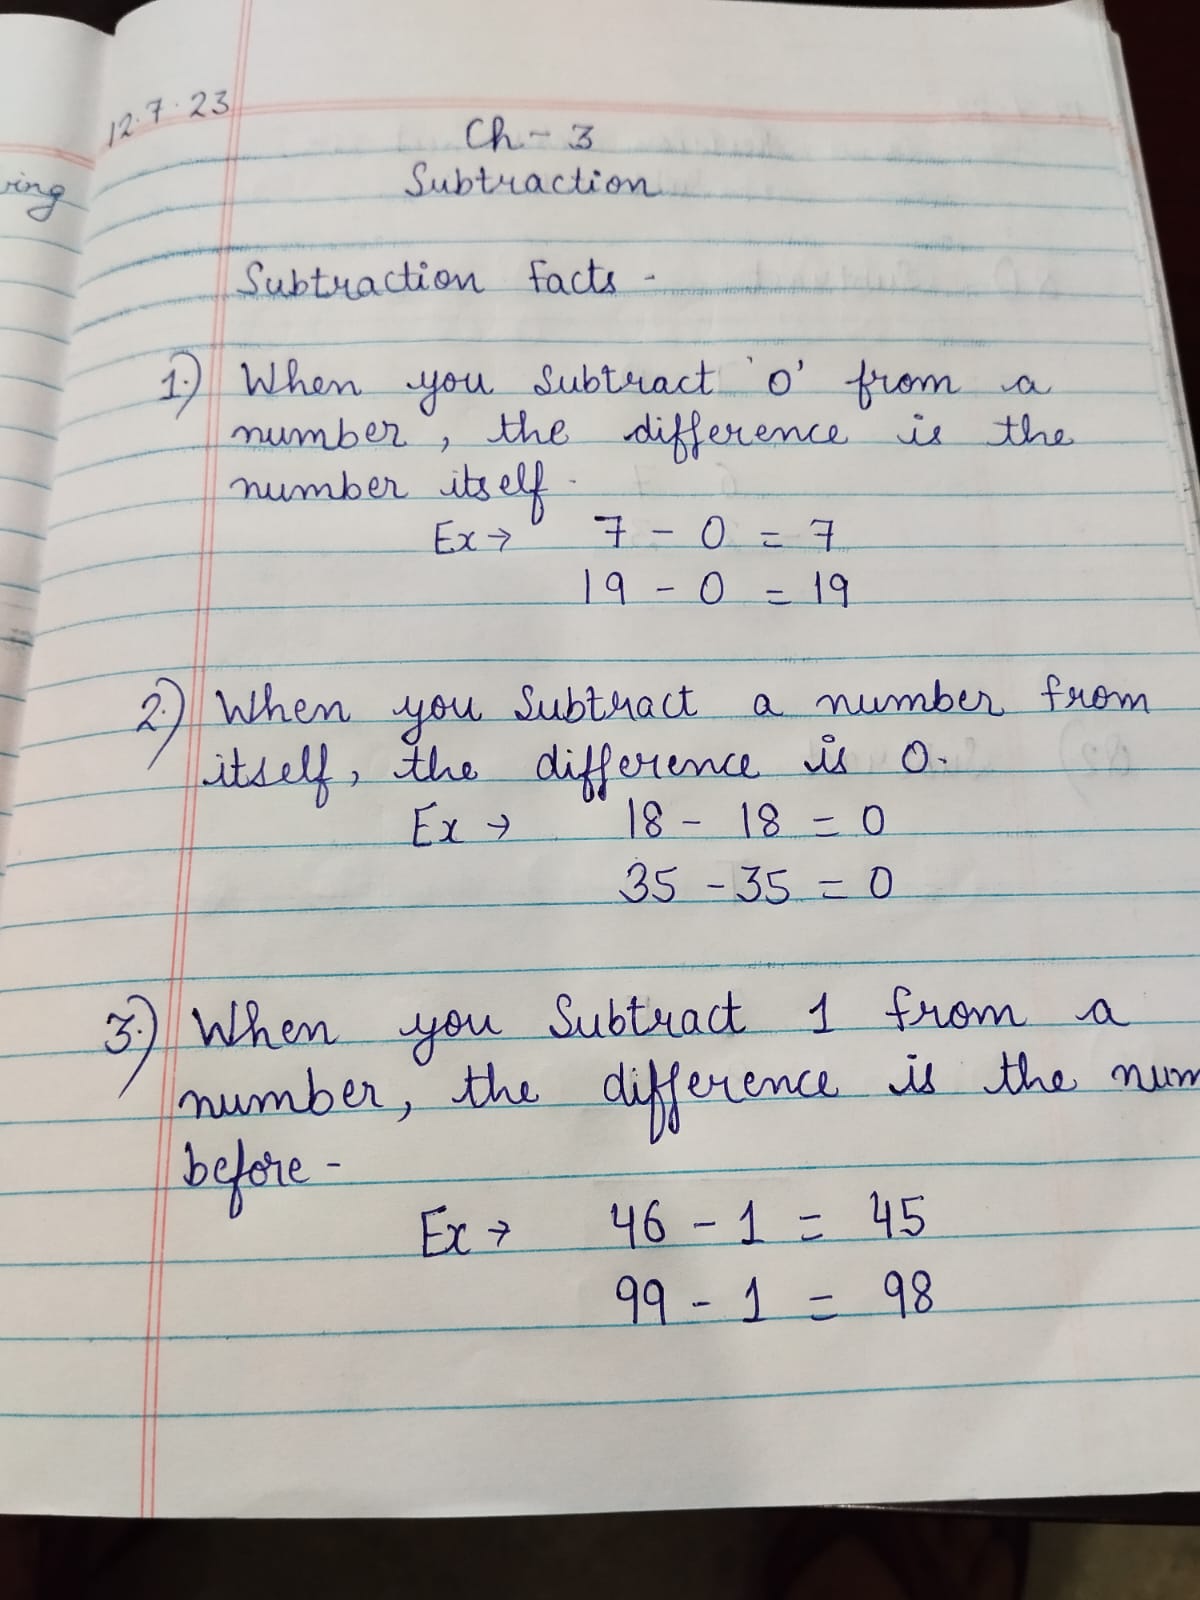 12.7.23
Ch - 3
Subtraction
Subtraction Facts -
1.) When you subtract '0' from a
number, the difference is the
number itself.
Ex → 7 - 0 = 7
19 - 0 = 19
2.) When you subtract a number from
itself, the difference is 0.
Ex → 18 - 18 = 0
35 - 35 = 0
3.) When you subtract 1 from a
number, the difference is the num
before -
Ex → 46 - 1 = 45
99 - 1 = 98